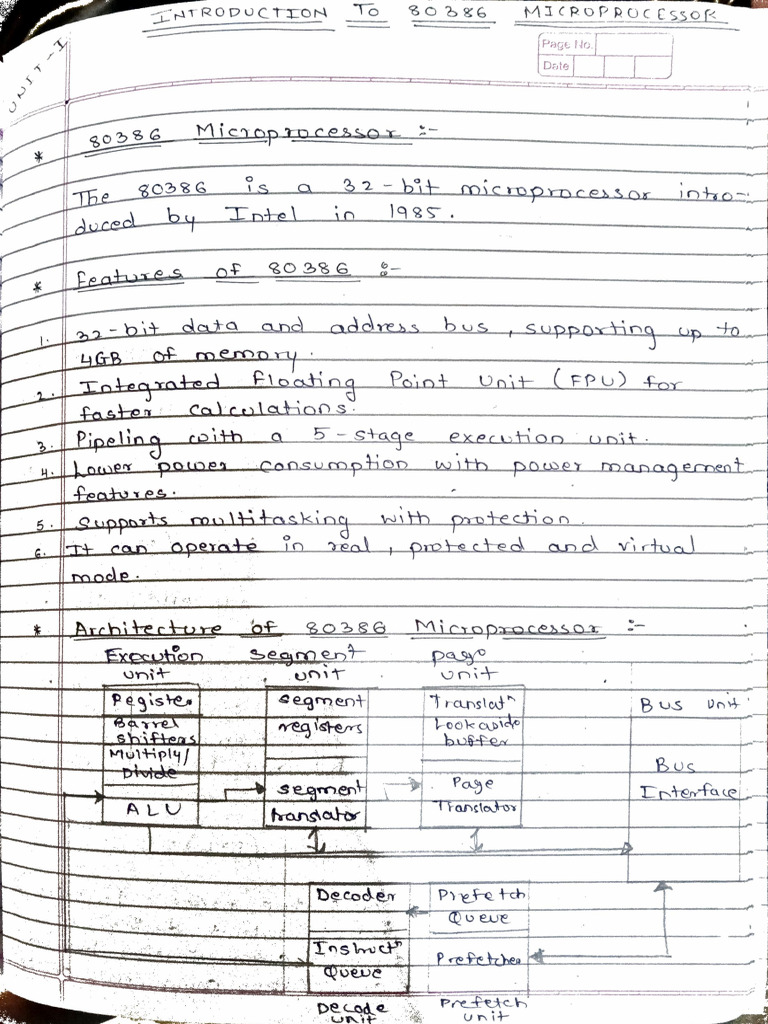 INTRODUCTION TO 80386 MICROPROCESSOR
Page No.
Date
UNIT-I
* 80386 Microprocessor :-
The 80386 is a 32-bit microprocessor intro-
duced by Intel in 1985.
* Features of 80386 :-
1. 32-bit data and address bus, supporting up to
4GB of memory.
2. Integrated Floating Point Unit (FPU) for
faster calculations.
3. Pipeling with a 5-stage execution unit.
4. Lower power consumption with power management
features.
5. Supports multitasking with protection.
6. It can operate in real, protected and virtual
mode.
* Architecture of 80386 Microprocessor :-
Execution unit
Register
Barrel
shifters
Multiply/
Divide
ALU
segment unit
segment
registers
segment
translator
page unit
Translatn
Lookaside
buffer
Page
Translator
Bus unit
Bus
Interface
Decoder
Instructn
Queue
Decode unit
Prefetch
Queue
Prefetcher
Prefetch unit